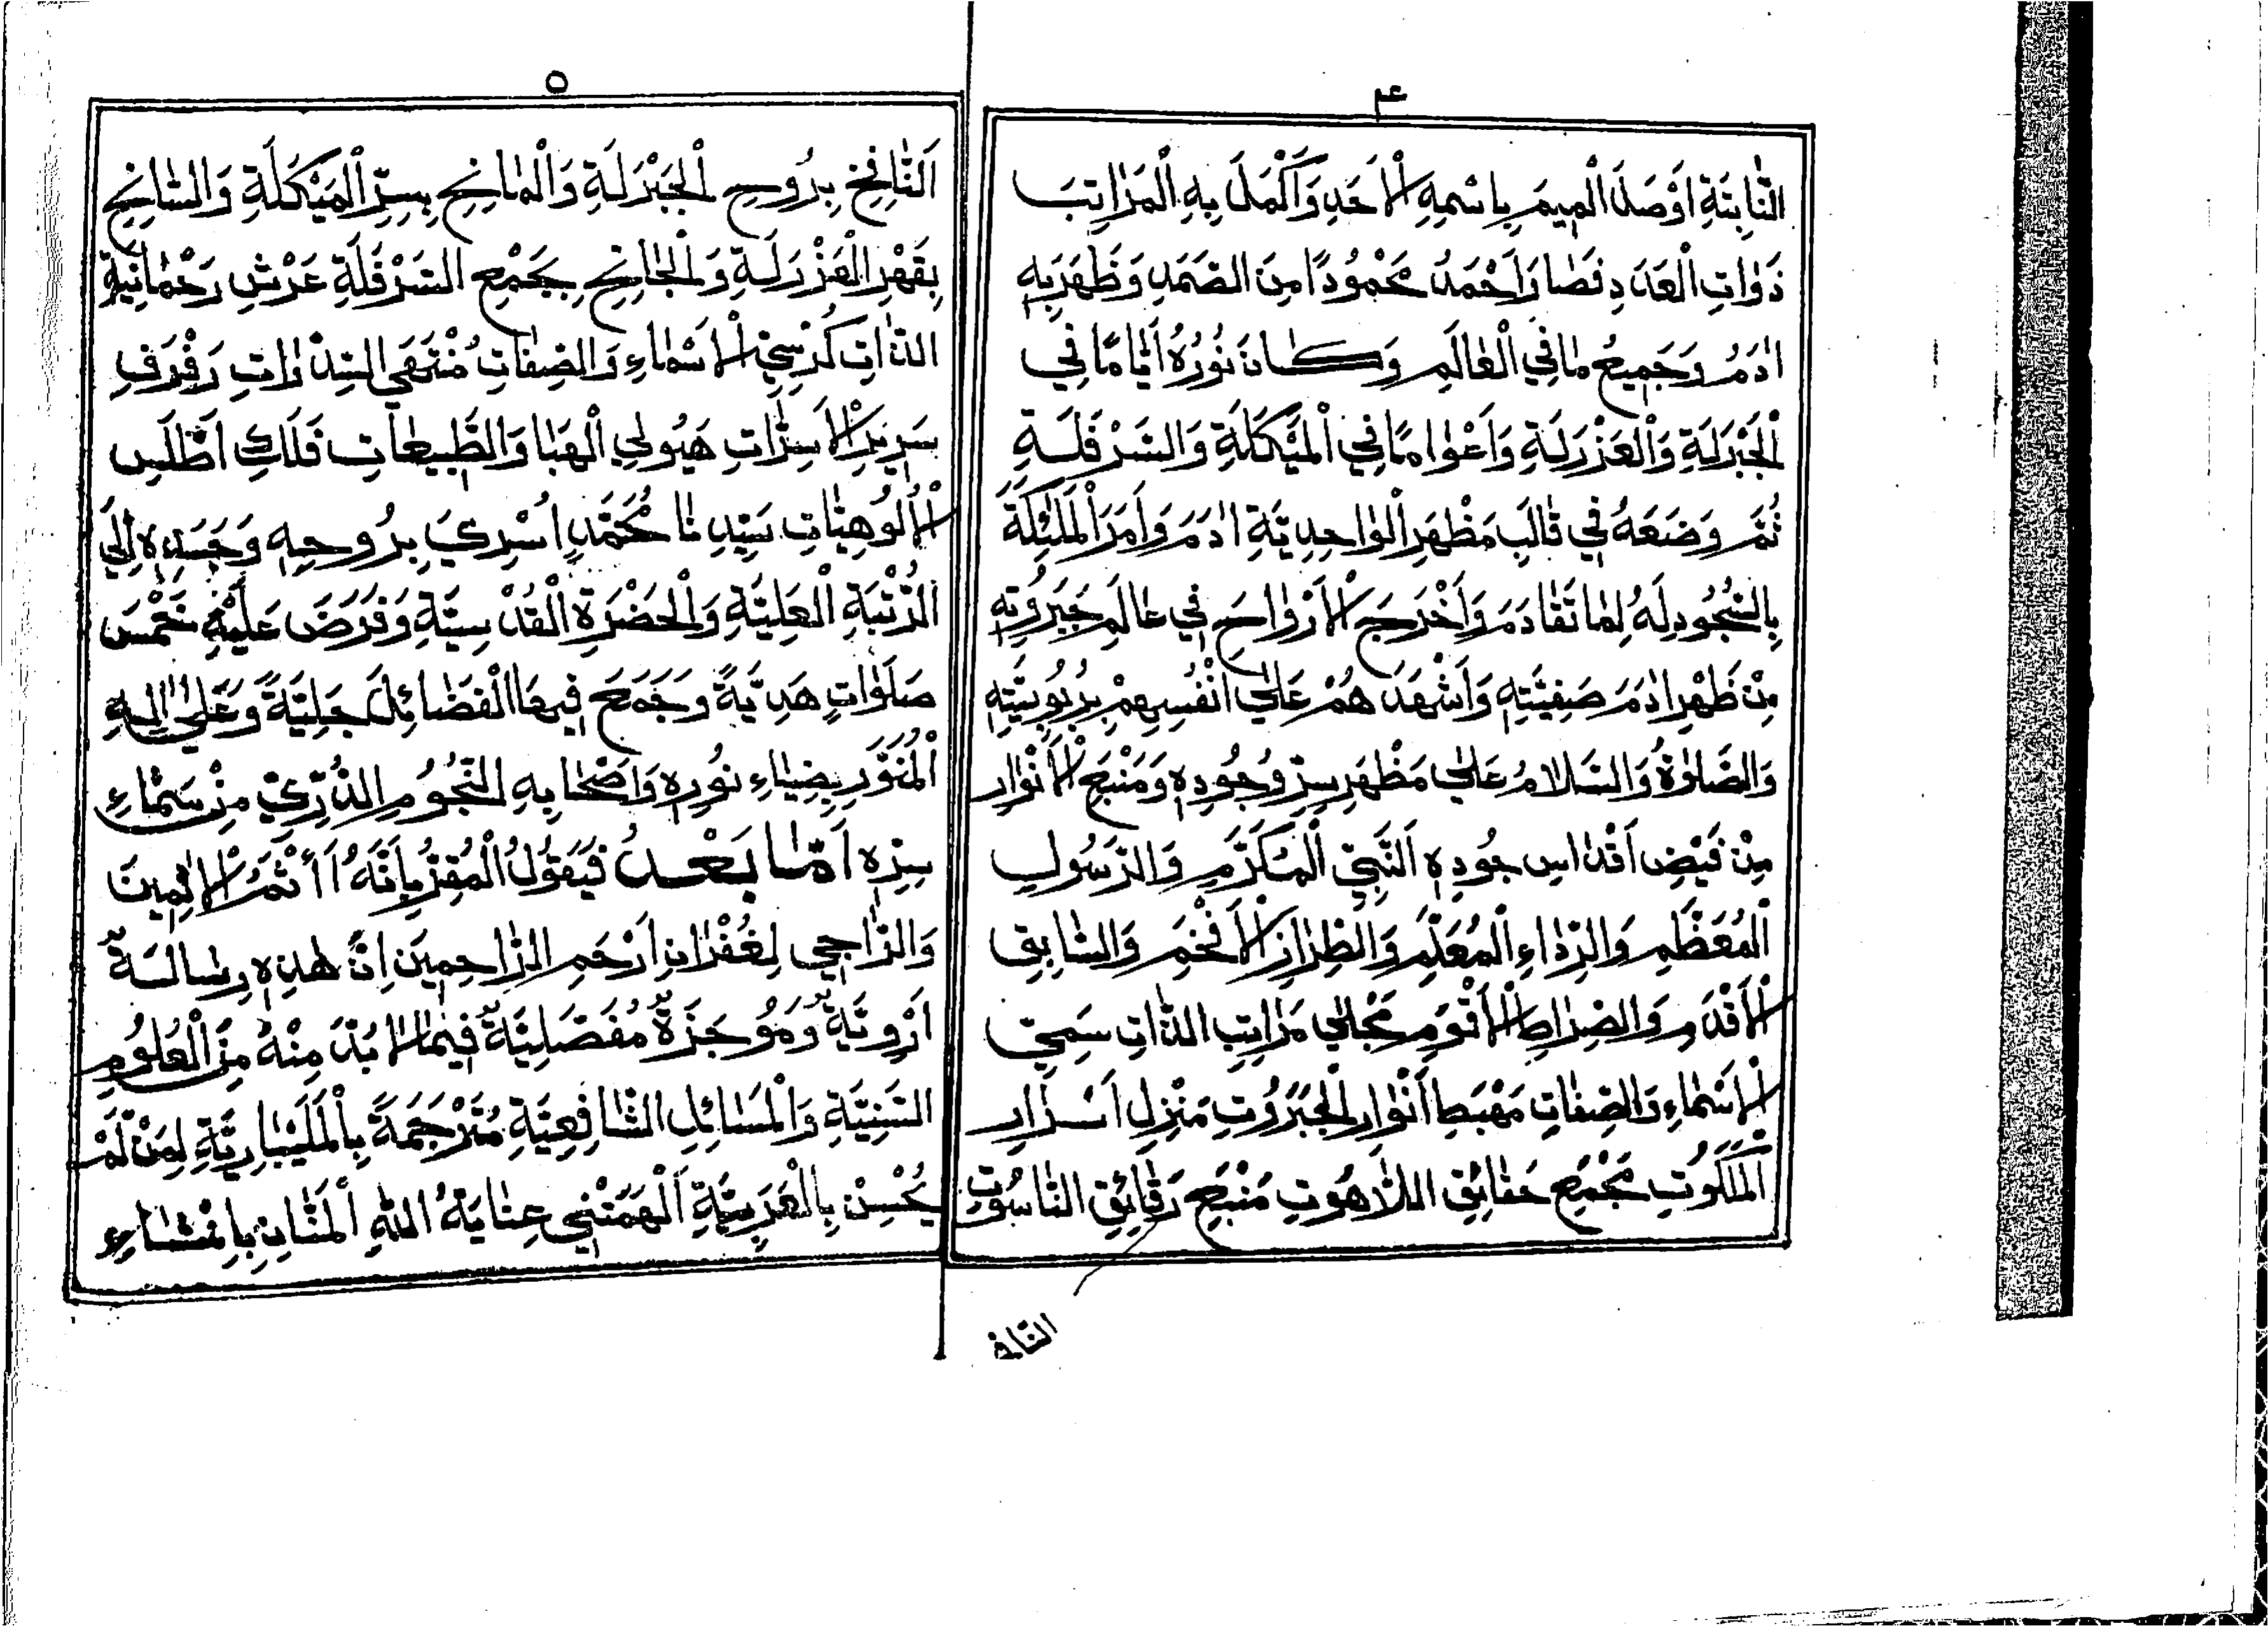 ۴
الثَّابِتَةِ اَوْصَلَ الْمِيمَ بِاسْمِهِ الْاَحَدِ وَاَكْمَلَ بِهِ الْمَرَاتِبَ
ذَوَاتِ الْعَدَدِ فَصَارَ اَحْمَدُ مَحْمُودًا مِنَ الصَّمَدِ وَظَهَرَ بِهِ
اٰدَمُ وَجَمِيعُ مَا فِي الْعَالَمِ وَكَانَ نُورُهُ اَيَّامًا فِي
الْجَبْرَلَةِ وَالْعَزْرَلَةِ وَاَعْوَامًا فِي الْمَيْكَلَةِ وَالسَّرْفَلَةِ
ثُمَّ وَضَعَهُ فِي قَالَبِ مَظْهَرِ الْوَاحِدِيَّةِ اٰدَمَ وَاَمَرَ الْمَلٰئِكَةَ
بِالسُّجُودِ لَهُ لِمَا تَقَادَمَ وَاَخْرَجَ الْاَرْوَاحَ فِي عَالَمِ جَبَرُوتِهِ
مِنْ ظَهْرِ اٰدَمَ صَفِيَّتِهِ وَاَشْهَدَهُمْ عَلٰي اَنْفُسِهِمْ بِرُبُوبِيَّتِهِ
وَالصَّلٰوةُ وَالسَّلَامُ عَلٰي مَظْهَرِ سِرِّ وُجُودِهِ وَمَنْبَعِ الْاَنْوَارِ
مِنْ فَيْضِ اَقْدَاسِ جُودِهِ اَلنَّبِيِّ الْمُكَرَّمِ وَالرَّسُولِ
الْمُعَظَّمِ وَالرِّدَاءِ الْمُعَلَّمِ وَالطِّرَازِ الْاَفْخَمِ وَالسَّابِقِ
الْاَقْدَمِ وَالصِّرَاطِ الْاَقْوَمِ مَجَالِي مَرَاتِبِ الذَّاتِ سَمِيِّ
الْاَسْمَاءِ وَالصِّفَاتِ مَهْبَطِ اَنْوَارِ الْجَبَرُوتِ مَنْزِلِ اَسْرَارِ
الْمَلَكُوتِ مَجْمَعِ حَقَائِقِ اللَّاهُوتِ مَنْبَعِ رَقَائِقِ النَّاسُوتِ
النافخ
۵
اَلنَّافِخِ بِرُوحِ الْجَبْرَلَةِ وَالْمَانِحِ بِسِرِّ الْمَيْكَلَةِ وَالسَّانِحِ
بِقَهْرِ الْعَزْرَلَةِ وَالْجَانِحِ بِجَمْعِ السَّرْفَلَةِ عَرْشِ رَحْمَانِيَّةِ
الذَّاتِ كُرْسِيِّ الْاَسْمَاءِ وَالصِّفَاتِ مُنْتَهَي السِّدْرَاتِ رَفْرَفِ
سَرِيرِ الْاَسِرَّاتِ هَيُولِي الْهَبَا وَالطَّبِيعَاتِ فَلَكِ اَطْلَسِ
الْاُلُوهِيَّاتِ سَيِّدِنَا مُحَمَّدٍ اُسْرِيَ بِرُوحِهِ وَجَسَدِهِ اِلَي
الرُّتْبَةِ الْعَلِيَّةِ وَالْحَضْرَةِ الْقُدْسِيَّةِ وَفَرَضَ عَلَيْهِ خَمْسَ
صَلَوَاتٍ هَدِيَّةً وَجَمَعَ فِيهَا الْفَضَائِلَ جَلِيَّةً وَعَلٰي اٰلِهِ
الْمُنَوَّرِ بِضِيَاءِ نُورِهِ وَاَصْحَابِهِ النُّجُومِ الدُّرِّيِّ مِنْ سَمَاءِ
سِرِّهِ اَمَّا بَعْدُ فَيَقُولُ الْمُقِرُّ بِاَنَّهُ اَأْثَمُ الْاٰثِمِينَ
وَالرَّاجِي لِغُفْرَانِ اَرْحَمِ الرَّاحِمِينَ اِنَّ هٰذِهِ رِسَالَةٌ
اَرْوِيَّةٌ وَمُوجَزَةٌ مُفَصَّلِيَّةٌ فِيمَا لَا بُدَّ مِنْهُ مِنَ الْعُلُومِ
السَّنِيَّةِ وَالْمَسَائِلِ الشَّافِعِيَّةِ مُتَرْجَمَةً بِالْمَلَيْبَارِيَّةِ لِمَنْ لَمْ
يُحْسِنْ بِالْعَرَبِيَّةِ اَلْهَمَتْنِي عِنَايَةُ اللّٰهِ الْمَنَّانِ بِاِنْشَاءِ